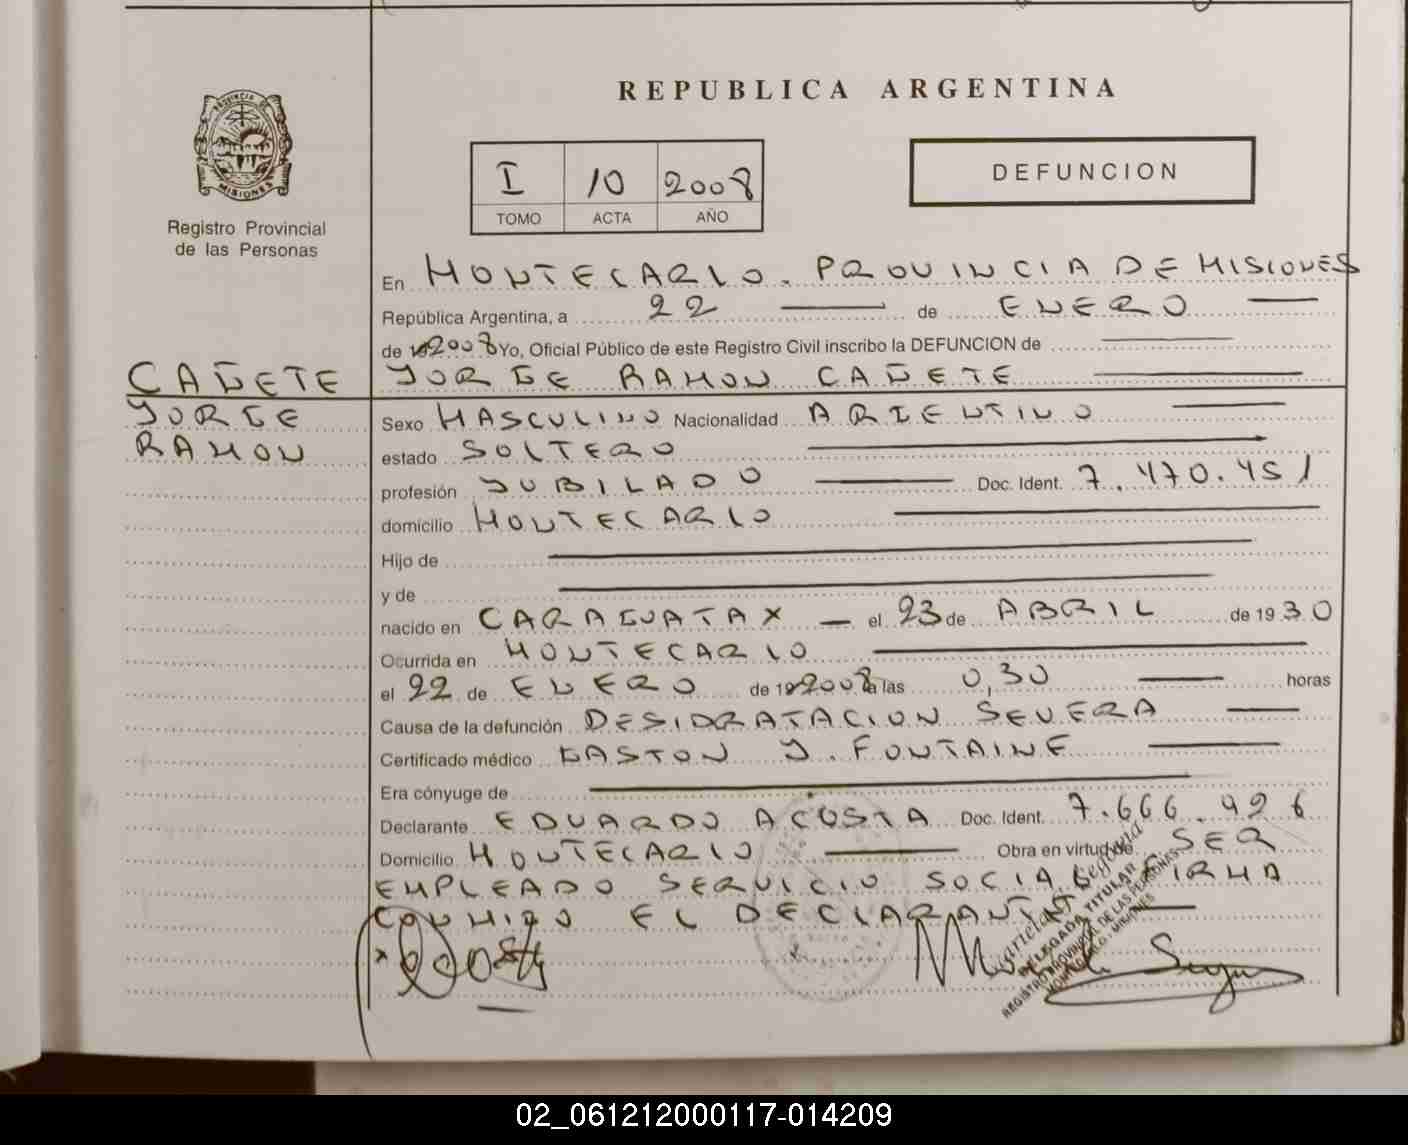 REPUBLICA ARGENTINA
PROVINCIA DE
MISIONES
Registro Provincial
de las Personas
I 10 2008
TOMO ACTA AÑO
DEFUNCION
En MONTECARLO. PROVINCIA DE MISIONES
República Argentina, a 22 de ENERO
de 2008 Yo, Oficial Público de este Registro Civil inscribo la DEFUNCION de
CAÑETE
JORGE
RAMON
JORGE RAMON CAÑETE
Sexo MASCULINO Nacionalidad ARGENTINO
estado SOLTERO
profesión JUBILADO Doc. Ident. 7.470.451
domicilio MONTECARLO
Hijo de
y de
nacido en CARAGUATAY el 23 de ABRIL de 1930
Ocurrida en MONTECARLO
el 22 de ENERO de 2008 a las 0,30 horas
Causa de la defunción DESIDRATACION SEVERA
Certificado médico GASTON J. FONTAINE
Era cónyuge de
Declarante EDUARDO ACOSTA Doc. Ident. 7.666.926
Domicilio MONTECARLO Obra en virtud de SER
EMPLEADO SERVICIO SOCIAL FIRMA
CONMIGO EL DECLARANTE
Segovia
DELEGADA TITULAR
REGISTRO PROVINCIAL DE LAS PERSONAS
MONTECARLO - MISIONES
02_061212000117-014209